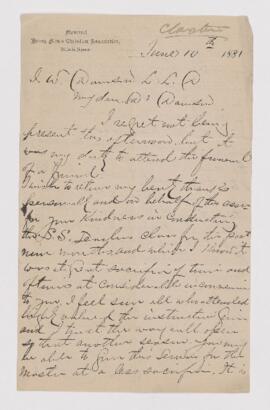 Claxton
Montreal
Young Men's Christian Association,
June 10th 1881
J. W. Dawson L.L.D
My dear Dr Dawson
I regret not being
present this afternoon but it
was my duty to attend the funeral
of a friend.
I wish to return my best thanks
personally and on behalf of the assn
for your kindness in conducting
the S.S. Teachers class for the past
nine months and which I know it
was at great sacrifice of time and
often at considerable inconvenience
to you. I feel sure all who attended
highly valued the instruction given
and I trust the way will open
so that another season you may
be able to give this service for the
Master at a less sacrifice. It is